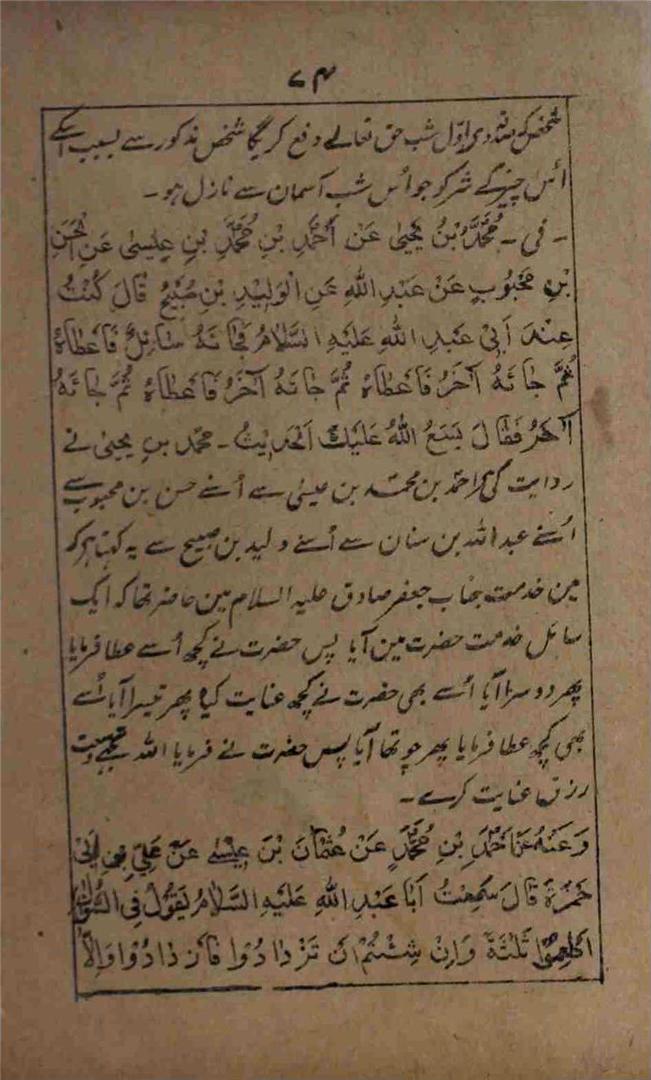 ۷۴
شخص کے صدقہ دی اوّل شب حق تعالے دفع کریگا شخص مذکور سے بسبب اسکے
اُس چیز کے شر کو جو اُس شب آسمان سے نازل ہو ۔
۔ فی ۔ مُحَمَّدُ بْنُ یَحْییٰ عَنْ اَحْمَدِ بْنِ مُحَمَّدِ بْنِ عِیسیٰ عَنِ الْحَسَنِ
بْنِ مَحْبُوبٍ عَنْ عَبْدِ اللهِ عَنِ الْوَلِیدِ بْنِ صُبَیْحٍ قَالَ کُنْتُ
عِنْدَ اَبِیْ عَبْدِ اللهِ عَلَیْهِ السَّلَامُ فَجَائَهُ سَائِلٌ فَاَعْطَاهُ
ثُمَّ جَائَهُ آخَرُ فَاَعْطَاهُ ثُمَّ جَائَهُ آخَرُ فَاَعْطَاهُ ثُمَّ جَائَهُ
آخَرُ فَقَالَ یَسَعُ اللهُ عَلَیْكَ الْحَدِیْثُ ۔ محمد بن یحییٰ نے
روایت کی احمد بن محمد بن عیسیٰ سے اُسنے حسن بن محبوب سے
اُسنے عبد الله بن سنان سے اُسنے ولید بن صبیح سے یہ کہتا ہے کہ
مین خدمت جناب جعفر صادق علیہ السلام مین حاضر تھا کہ ایک
سائل خدمت حضرت مین آیا پس حضرت نے کچھ اُسے عطا فرمایا
پھر دوسرا آیا اُسے بھی حضرت نے کچھ عنایت کیا پھر تیسرا آیا اُسے
بھی کچھ عطا فرمایا پھر چوتھا آیا پس حضرت نے فرمایا الله تجھے وسعت
رزق عنایت کرے ۔
وَعَنْهُ عَنْ اَحْمَدِ بْنِ مُحَمَّدٍ عَنْ عُثْمَانَ بْنَ عِیْسٰے عَنْ عَلِیِّ بْنِ اَبِیْ
حَمْزَةَ قَالَ سَمِعْتُ اَبَا عَبْدِ اللهِ عَلَیْهِ السَّلَامُ یَقُوْلُ فِی السُّؤَالِ
اَطْعِمُوْا ثَلٰثَةً وَاِنْ شِئْتُمْ اَنْ تَزْدَادُوْا فَازْدَادُوْا وَاِلَّا